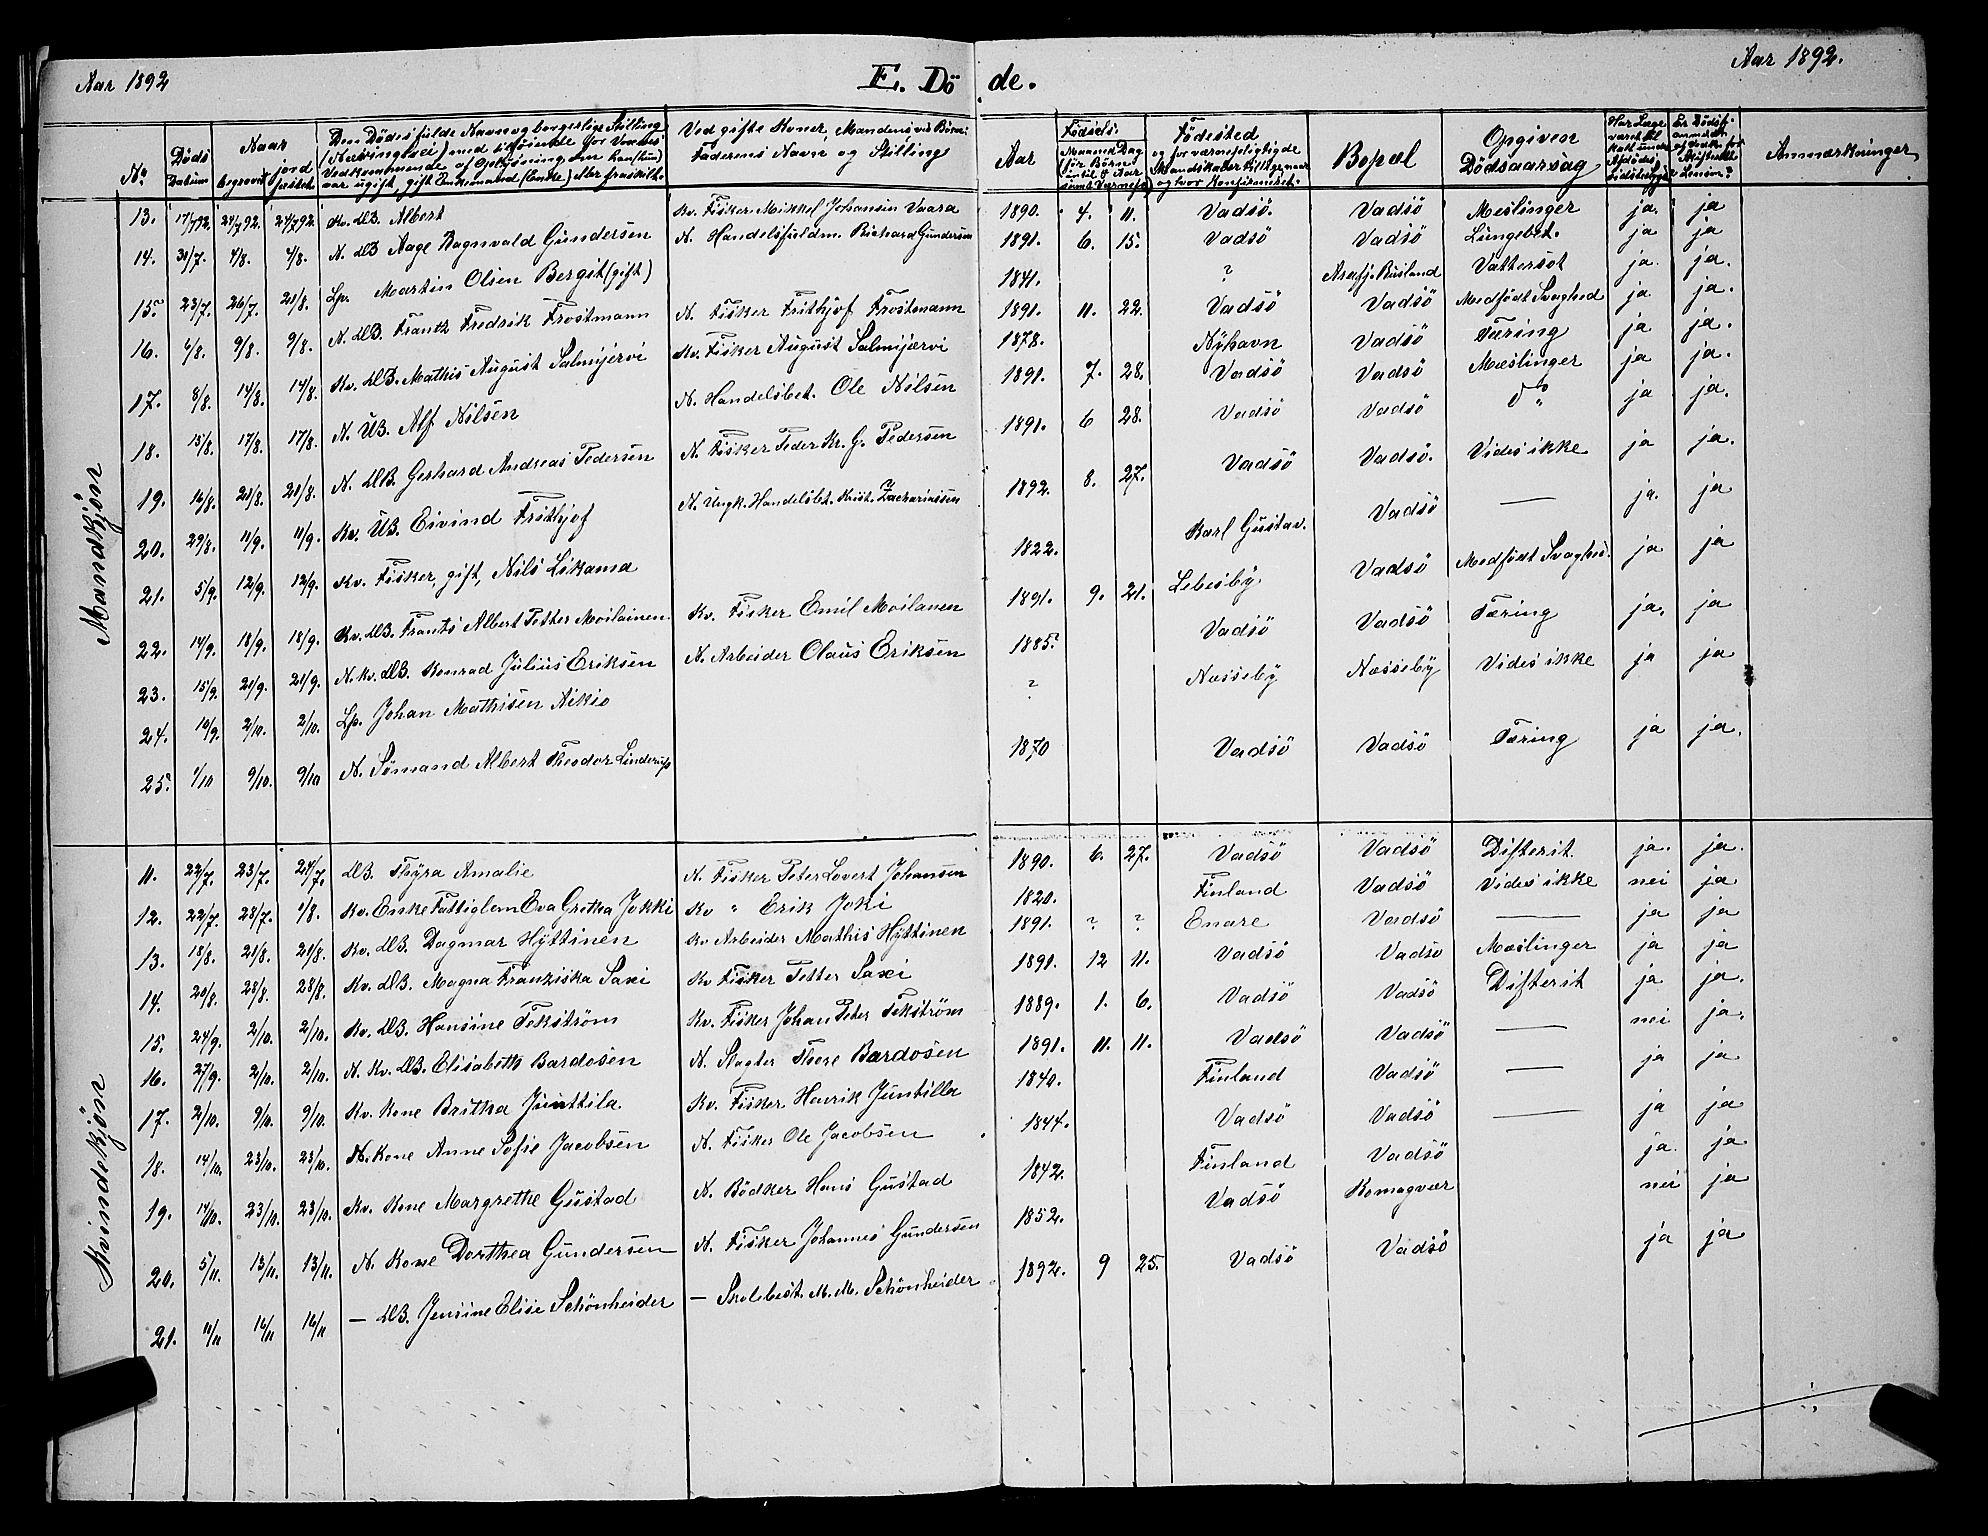 Aar 1892
E. Dö de.
Aar 1892.
No.
Döds Datum
Naar
begravet
jord fæstet
Den Dödes fulde Navn og borgerlige Stilling
(Næringsvei)
aar ugift, gift Enkemand (Enke) eller fraskilt.
Ved gifte Koner, Mandens ved Börn:
Faderens Navn og Stilling
Aar
Födsels:
Maaned Dag
for Börn
Födested
og for værnepligtige
Bopæl
Opgiven
Dödsaarsag
Anmærkninger
Mandkjön
13. 17/7 92. 24/7 92. 24/7 92. Kv. ÆB. Albert Kv. Fisker Mikkel Johansen Vaara 1890. 4. 11. Vadsö. Vadsö Meslinger ja. ja
14. 31/7. 4/8. 4/8. N. ÆB Aage Ragnvald Gundersen N. Handelsfuldm. Richard Gundersen 1891. 6. 15. Vadsö Vadsö Lungebet. ja ja
15. 23/7. 26/7. 21/8. Lp. Martin Olsen Bergit (gift) 1841. ? Arafj. Rusland Vattersot ja. ja.
16. 6/8. 9/8. 9/8. N. ÆB. Frantz Fredrik Frostmann N. Fisker Frithjof Frostmann 1891. 11. 22. Vadsö Vadsö Medfödt Svaghed ja ja.
17. 8/8. 14/8. 14/8. Kv. ÆB. Mathis August Salmijervi Kv. Fisker August Salmijærvi 1878. Nyhavn Vadsö Tæring ja ja.
18. 15/8. 17/8. 17/8. N. UB. Alf Nilsen N. Handelsbet. Ole Nilsen 1891. 7. 28. Vadsö Vadsö Mæslinger ja ja.
19. 16/8. 21/8. 21/8. N. ÆB. Gerhard Andreas Pedersen N. Fisker Peder Kr. G. Pedersen 1891. 6 28. Vadsö Vadsö do " ja ja.
20. 29/8. 11/9. 11/9. Kv. UB. Eivind Frithjof N. Ungk. Handelsbet. Krist. Zachariassen 1892. 8. 27. Vadsö Vadsö. Vides ikke ja ja.
21. 5/9. 12/9. 12/9. Kv. Fisker, gift, Nils Likama 1822. Karl Gustav. Vadsö — ja. ja
22. 14/9. 18/9. 18/9. Kv. ÆB. Frants Albert Petter Moilainen Kv. Fisker Emil Moilanen 1891. 9. 21. Lebesby Vadsö Medfödt Svaghed. ja ja
23. 15/9. 21/9. 21/9. N. kv. ÆB. Konrad Julius Eriksen N. Arbeider Olaus Eriksen 1885. Vadsö Vadsö Tæring ja. ja
24. 10/9. 2/10. 2/10. Lp. Johan Mathisen Nikio ? Næsseby Næsseby Vides ikke ja ja
25. 1/10 9/10. 9/10 N. Sömand Albert Theodor Linderup 1870 Vadsö Vadsö Tæring ja ja.
Kvindekjön
11. 22/7. 23/7. 24/7. ÆB. Thyra Amalie N. Fisker Peter Lovert Johansen 1890. 6. 27. Vadsö Vadsö Difterit. ja. ja.
12. 22/7. 28/7. 1/8. Kv. Enke Fattiglem Eva Gretha Jokki Kv " Erik Joki 1820. Finland Vadsö Vides ikke nei ja
13. 18/8. 21/8. 21/8. Kv. ÆB. Dagmar Hyttinen Kv Arbeider Mathis Hyttinen 1891. ? ? Enare Vadsö — ja ja
14. 20/8. 28/8. 28/8. Kv. ÆB. Magna Franziska Saxi Kv Fisker Petter Saxi 1891. 12 11. Vadsö Vadsö Mæslinger ja ja
15. 24/9. 2/10. 2/10. Kv. ÆB. Hansine Tekström Kv. Fisker Johan Peter Tekström 1889. 1. 6. Vadsö Vadsö Difterit ja ja.
16. 27/9. 2/10. 2/10. N. Kv. ÆB. Elisabeth Bardosen N. Slagter Thore Bardosen 1891. 11. 11. Vadsö Vadsö — nei ja.
17. 2/10. 9/10. 9/10. Kv. Kone Britha Junttila Kv. Fisker Henrik Juntilla 1840. Finland Vadsö — ja ja
18. 14/10. 23/10. 23/10. N. Kone Anne Sofie Jacobsen N. Fisker Ole Jacobsen 1844. Vadsö Vadsö — ja ja
19. 14/10. 23/10. 23/10. Kv. Kone Margrethe Gustad N. Bödker Hans Gustad 1842. Finland Vadsö ja. ja
20. 5/11. 13/11. 13/11. N. Kone Dorthea Gundersen N. Fisker Johannes Gundersen 1852. Vadsö Komagvær nei ja
21. 11/11 16/11 16/11 — ÆB. Jensine Elise Schönheider — Skolebest. M. M. Schönheider 1892. 9 25. Vadsö Vadsö ja ja